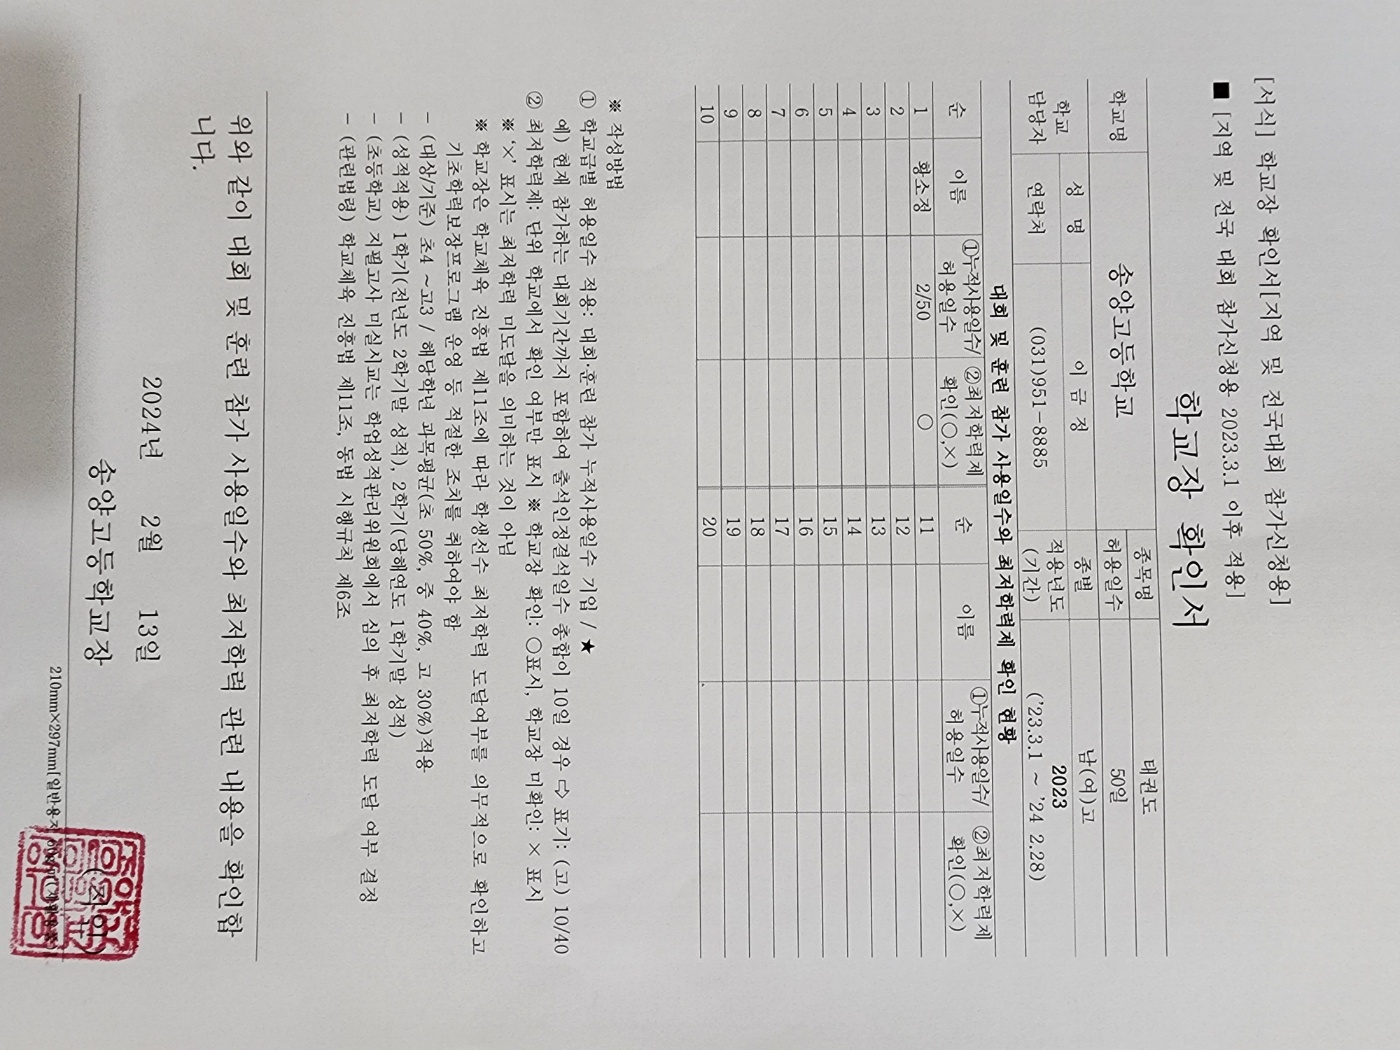 [서식] 학교장 확인서[지역 및 전국대회 참가신청용]
■ [지역 및 전국 대회 참가신청용 2023.3.1 이후 적용]
학교장 확인서
학교명 송양고등학교 종목명 태권도
허용일수 50일
학교 담당자 성 명 이 금 정 종별 남(여)고
연락처 (031)951-8885 적용년도 (기간) 2023 ('23.3.1 ~ '24 2.28)
대회 및 훈련 참가 사용일수와 최저학력제 확인 현황
순 이름 ①누적사용일수/허용일수 ②최저학력제 확인(○,×) 순 이름 ①누적사용일수/허용일수 ②최저학력제 확인(○,×)
1 황소정 2/50 ○ 11
2 12
3 13
4 14
5 15
6 16
7 17
8 18
9 19
10 20
※ 작성방법
① 학교급별 허용일수 적용: 대회·훈련 참가 누적사용일수 기입 / ★
예) 현제 참가하는 대회기간까지 포함하여 출석인정결석일수 총합이 10일 경우 ⇨ 표기: (고) 10/40
② 최저학력제: 단위 학교에서 확인 여부만 표시 ※ 학교장 확인: ○표시, 학교장 미확인: × 표시
※ '×' 표시는 최저학력 미도달을 의미하는 것이 아님
※ 학교장은 학교체육 진흥법 제11조에 따라 학생선수 최저학력 도달여부를 의무적으로 확인하고
기초학력보장프로그램 운영 등 적절한 조치를 취하여야 함
- (대상/기준) 초4 ~고3 / 해당학년 과목평균(초 50%, 중 40%, 고 30%)적용
- (성적적용) 1학기(전년도 2학기말 성적), 2학기(당해연도 1학기말 성적)
- (초등학교) 지필고사 미실시교는 학업성적관리위원회에서 심의 후 최저학력 도달 여부 결정
- (관련법령) 학교체육 진흥법 제11조, 동법 시행규칙 제6조
위와 같이 대회 및 훈련 참가 사용일수와 최저학력 관련 내용을 확인함
니다.
2024년 2월 13일
송양고등학교장 (직인)
210mm×297mm[일반용지